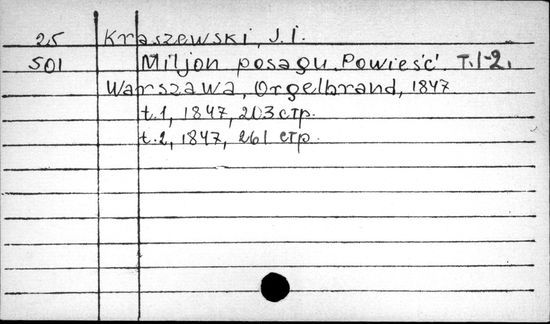 25 Kraszewski, J.I.
501 Miljon posagu. Powieść. T.1-2.
Warszawa, Orgelbrand, 1847
t.1, 1847, 203 стр.
t.2, 1847, 261 стр.